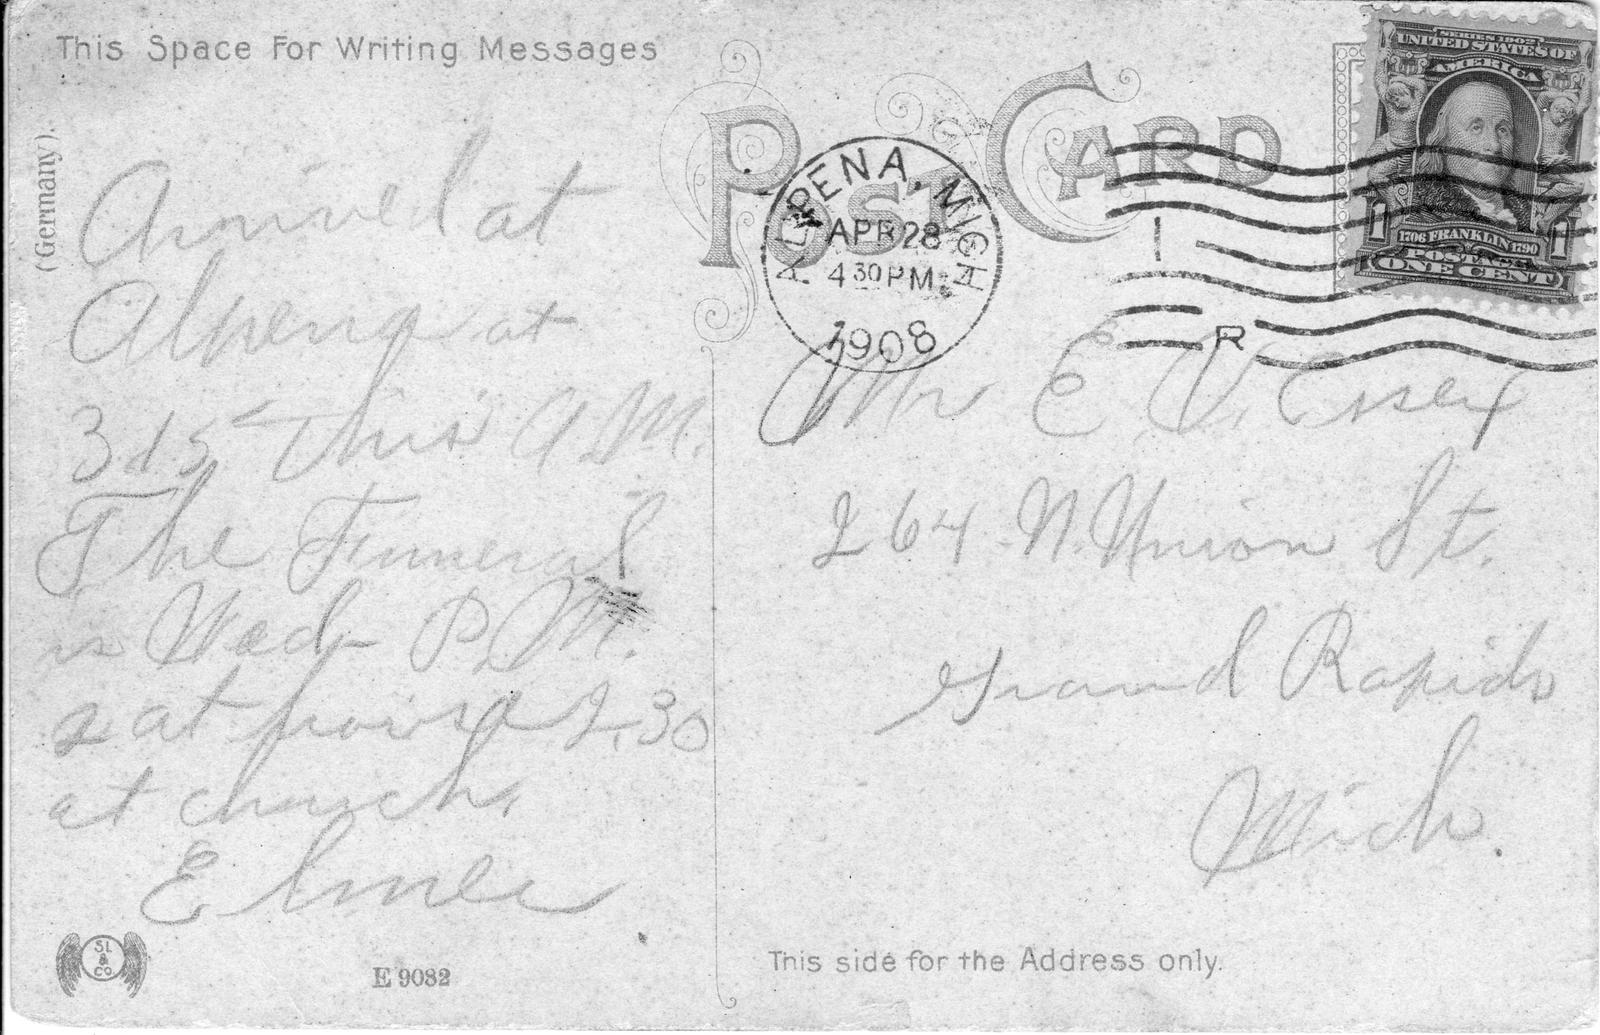 This Space For Writing Messages
POST CARD
SERIES 1902
UNITED STATES OF
AMERICA
1706 FRANKLIN 1790
POSTAGE
ONE CENT
1 1
(Germany).
ALPENA, MICH
APR 28
4 30 PM
1908
1
R
Arrived at
Alpena at
this A.M.
The Funeral
is Wed- P.M.
2 at house 2.30
at church.
Elmer
Mr E. V. Essex
264 N. Union St.
Grand Rapids
Mich.
SL
&
CO
E 9082
This side for the Address only.